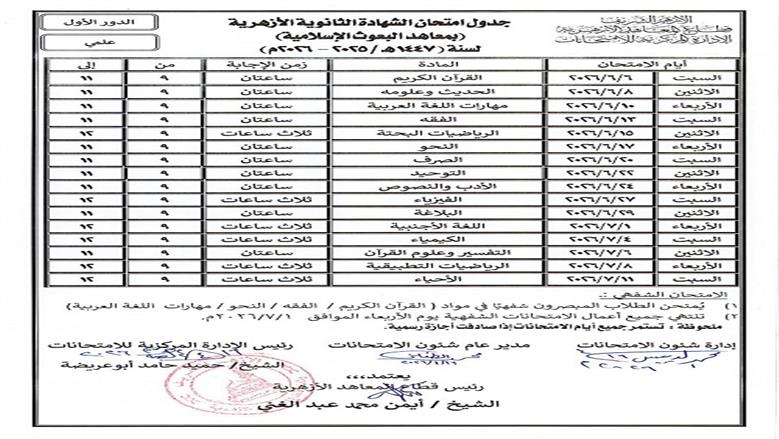 الأزهر الشريف
قطاع المعاهد الأزهرية
الإدارة المركزية للامتحانات
جدول امتحان الشهادة الثانوية الأزهرية
(بمعاهد البعوث الإسلامية)
لسنة (١٤٤٧هـ/ ٢٠٢٥ – ٢٠٢٦م)
الدور الأول
علمي
أيام الامتحان المادة زمن الإجابة من إلى
السبت ٢٠٢٦/٦/٦ القرآن الكريم ساعتان ٩ ١١
الاثنين ٢٠٢٦/٦/٨ الحديث وعلومه ساعتان ٩ ١١
الأربعاء ٢٠٢٦/٦/١٠ مهارات اللغة العربية ساعتان ٩ ١١
السبت ٢٠٢٦/٦/١٣ الفقه ساعتان ٩ ١١
الاثنين ٢٠٢٦/٦/١٥ الرياضيات البحتة ثلاث ساعات ٩ ١٢
الأربعاء ٢٠٢٦/٦/١٧ النحو ساعتان ٩ ١١
السبت ٢٠٢٦/٦/٢٠ الصرف ساعتان ٩ ١١
الاثنين ٢٠٢٦/٦/٢٢ التوحيد ساعتان ٩ ١١
الأربعاء ٢٠٢٦/٦/٢٤ الأدب والنصوص ساعتان ٩ ١١
السبت ٢٠٢٦/٦/٢٧ الفيزياء ثلاث ساعات ٩ ١٢
الاثنين ٢٠٢٦/٦/٢٩ البلاغة ساعتان ٩ ١١
الأربعاء ٢٠٢٦/٧/١ اللغة الأجنبية ثلاث ساعات ٩ ١٢
السبت ٢٠٢٦/٧/٤ الكيمياء ثلاث ساعات ٩ ١٢
الاثنين ٢٠٢٦/٧/٦ التفسير وعلوم القرآن ساعتان ٩ ١١
الأربعاء ٢٠٢٦/٧/٨ الرياضيات التطبيقية ثلاث ساعات ٩ ١٢
السبت ٢٠٢٦/٧/١١ الأحياء ثلاث ساعات ٩ ١٢
الامتحان الشفهي :ـ
١) يُمتحن الطلاب المبصرون شفهيًا في مواد ( القرآن الكريم / الفقه / النحو / مهارات اللغة العربية)
٢) تنتهي جميع أعمال الامتحانات الشفهية يوم الأربعاء الموافق ٢٠٢٦/٧/١م.
ملحوظة : تستمر جميع أيام الامتحانات إذا صادفت أجازة رسمية.
إدارة شئون الامتحانات مدير عام شئون الامتحانات رئيس الإدارة المركزية للامتحانات
الشيخ/ حميد حامد أبوعريضة
يعتمد،،،،
رئيس قطاع المعاهد الأزهرية
الشيخ / أيمن محمد عبد الغني